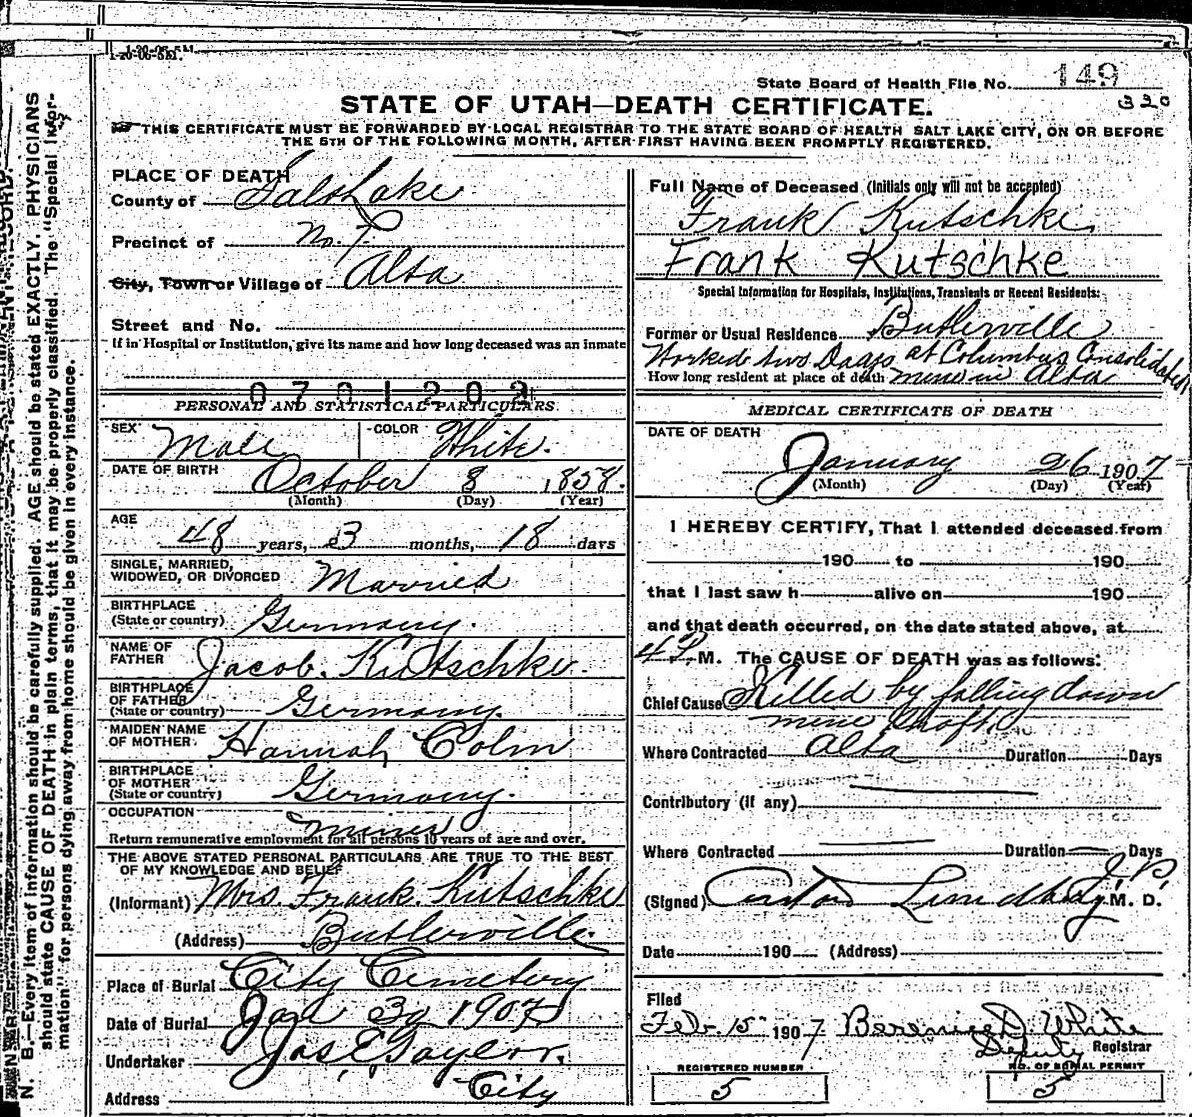 1-20-06-5M.
State Board of Health File No. 149
320
STATE OF UTAH—DEATH CERTIFICATE.
THIS CERTIFICATE MUST BE FORWARDED BY LOCAL REGISTRAR TO THE STATE BOARD OF HEALTH SALT LAKE CITY, ON OR BEFORE
THE 5TH OF THE FOLLOWING MONTH, AFTER FIRST HAVING BEEN PROMPTLY REGISTERED.
N. B.—Every item of information should be carefully supplied. AGE should be stated EXACTLY. PHYSICIANS
should state CAUSE OF DEATH in plain terms, that it may be properly classified. The "Special Infor-
mation" for persons dying away from home should be given in every instance.
PLACE OF DEATH
County of Salt Lake
Precinct of No. 7
City, Town or Village of Alta
Street and No.
If in Hospital or Institution, give its name and how long deceased was an inmate
0701202
PERSONAL AND STATISTICAL PARTICULARS
SEX Male COLOR White.
DATE OF BIRTH October 8 1858.
(Month) (Day) (Year)
AGE
48 years, 3 months, 18 days
SINGLE, MARRIED,
WIDOWED, OR DIVORCED Married
BIRTHPLACE
(State or country) Germany.
NAME OF
FATHER Jacob. Kutschke.
BIRTHPLACE
OF FATHER
(State or country) Germany.
MAIDEN NAME
OF MOTHER Hannah Colm
BIRTHPLACE
OF MOTHER
(State or country) Germany.
OCCUPATION miner
Return remunerative employment for all persons 10 years of age and over.
THE ABOVE STATED PERSONAL PARTICULARS ARE TRUE TO THE BEST
OF MY KNOWLEDGE AND BELIEF
(Informant) Mrs. Frank Kutschke
(Address) Butlerville.
Place of Burial City Cemetery
Date of Burial Jan 30 1907
Undertaker Jos E Taylor.
Address City
Full Name of Deceased (Initials only will not be accepted)
Frank Kutschke
Frank Kutschke
Special Information for Hospitals, Institutions, Transients or Recent Residents:
Former or Usual Residence Butlerville
Worked two Days at Columbus Consolidated
How long resident at place of death mine in Alta
MEDICAL CERTIFICATE OF DEATH
DATE OF DEATH
January 26 1907
(Month) (Day) (Year)
I HEREBY CERTIFY, That I attended deceased from
190 to 190
that I last saw h alive on 190
and that death occurred, on the date stated above, at
4 P. M. The CAUSE OF DEATH was as follows:
Chief Cause Killed by falling down
mine shaft
Where Contracted Alta Duration Days
Contributory (if any)
Where Contracted Duration Days
J.P.
(Signed) M. D.
Date 190 (Address)
Filed
Feb. 15 1907 White
Deputy Registrar
REGISTERED NUMBER
5
NO. OF BURIAL PERMIT
5